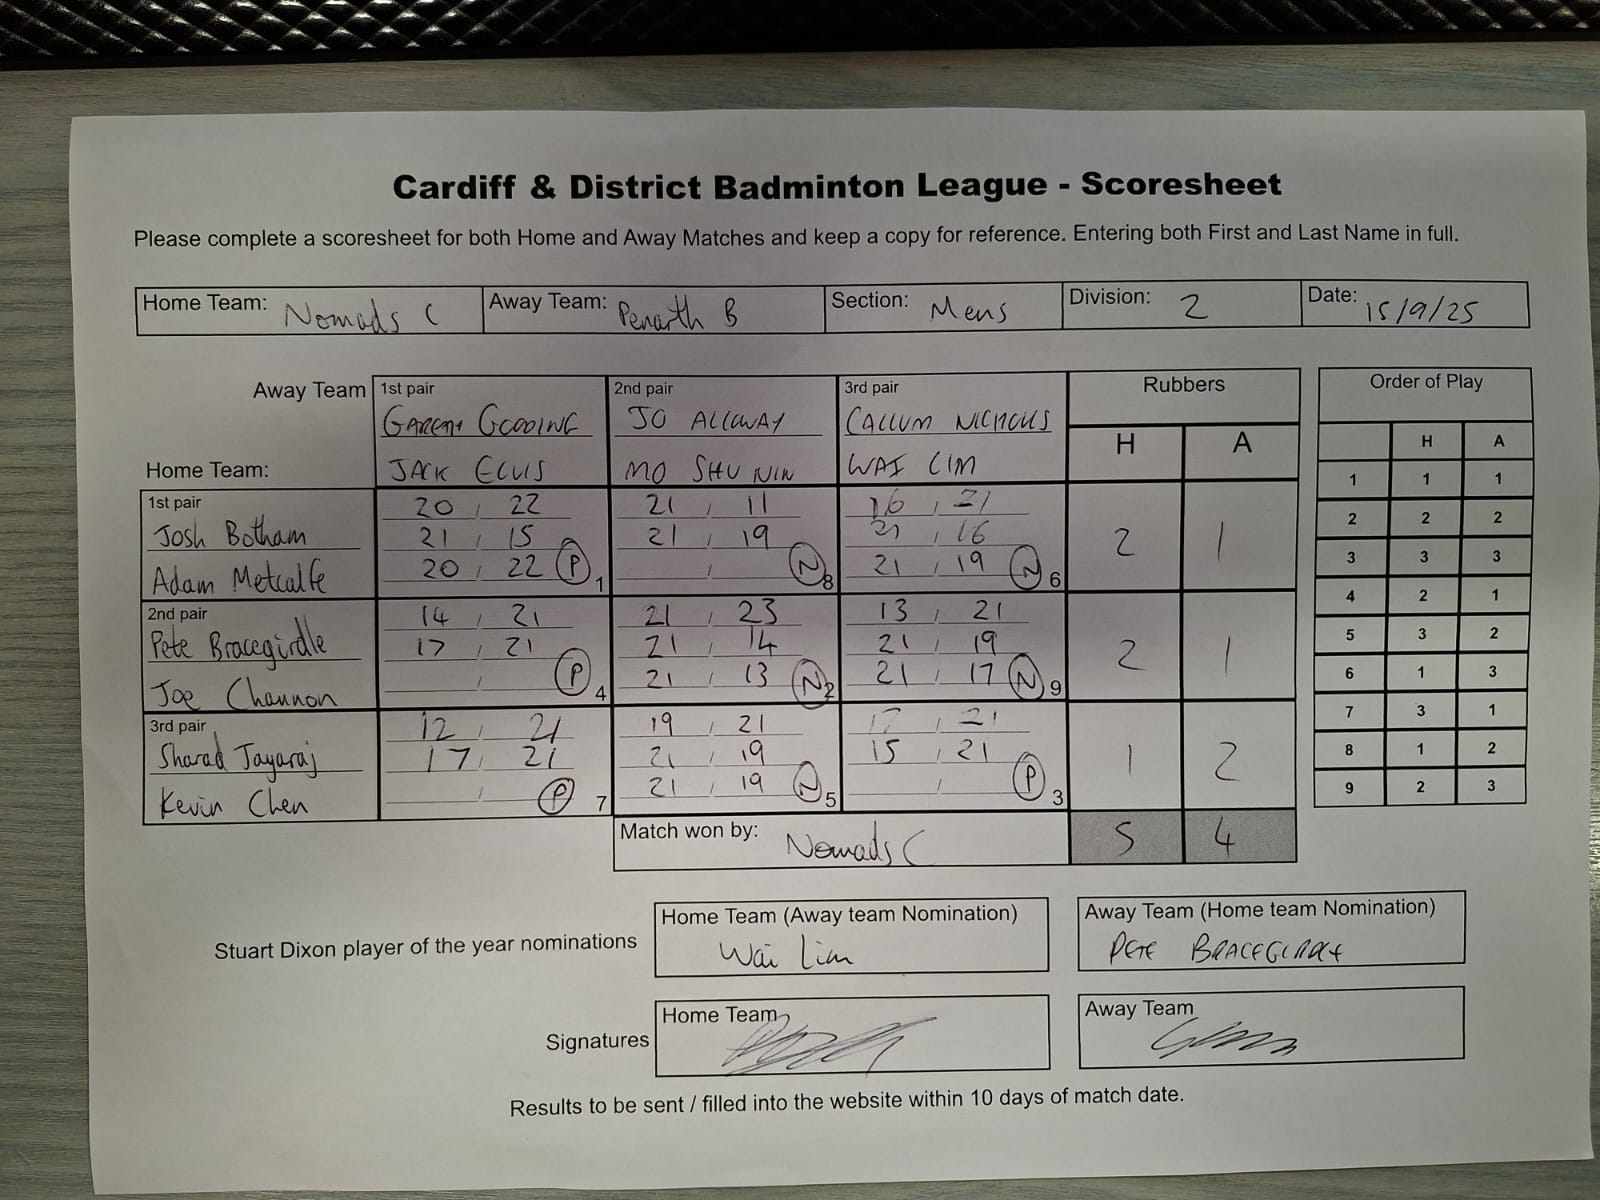 Cardiff & District Badminton League - Scoresheet
Please complete a scoresheet for both Home and Away Matches and keep a copy for reference. Entering both First and Last Name in full.
Home Team: Nomads C Away Team: Penarth B Section: Mens Division: 2 Date: 15/9/25
Away Team 1st pair 2nd pair 3rd pair Rubbers Order of Play
GARETH GOODING JO ALLOWAY CALLUM NICHOLLS
H A
H A
Home Team: JACK ELVIS MO SHU NIN WAI LIM
1 1 1
1st pair 20 , 22 21 , 11 16 , 21
2 2 2
Josh Botham 21 , 15 21 , 19 21 , 16 2 1
3 3 3
Adam Metcalfe 20 , 22 P 1 , N 8 21 , 19 N 6
4 2 1
2nd pair 14 , 21 21 , 23 13 , 21
5 3 2
Pete Bracegirdle 17 , 21 21 , 14 21 , 19 2 1
6 1 3
Joe Channon , P 4 21 , 13 N 2 21 , 17 N 9
7 3 1
3rd pair 12 , 21 19 , 21 17 , 21
8 1 2
Sharad Jayaraj 17 , 21 21 , 19 15 , 21 1 2
9 2 3
Kevin Chen , P 7 21 , 19 N 5 , P 3
Match won by: Nomads C 5 4
Home Team (Away team Nomination) Away Team (Home team Nomination)
Stuart Dixon player of the year nominations Wai Lim PETE
Home Team Away Team
Signatures
Results to be sent / filled into the website within 10 days of match date.